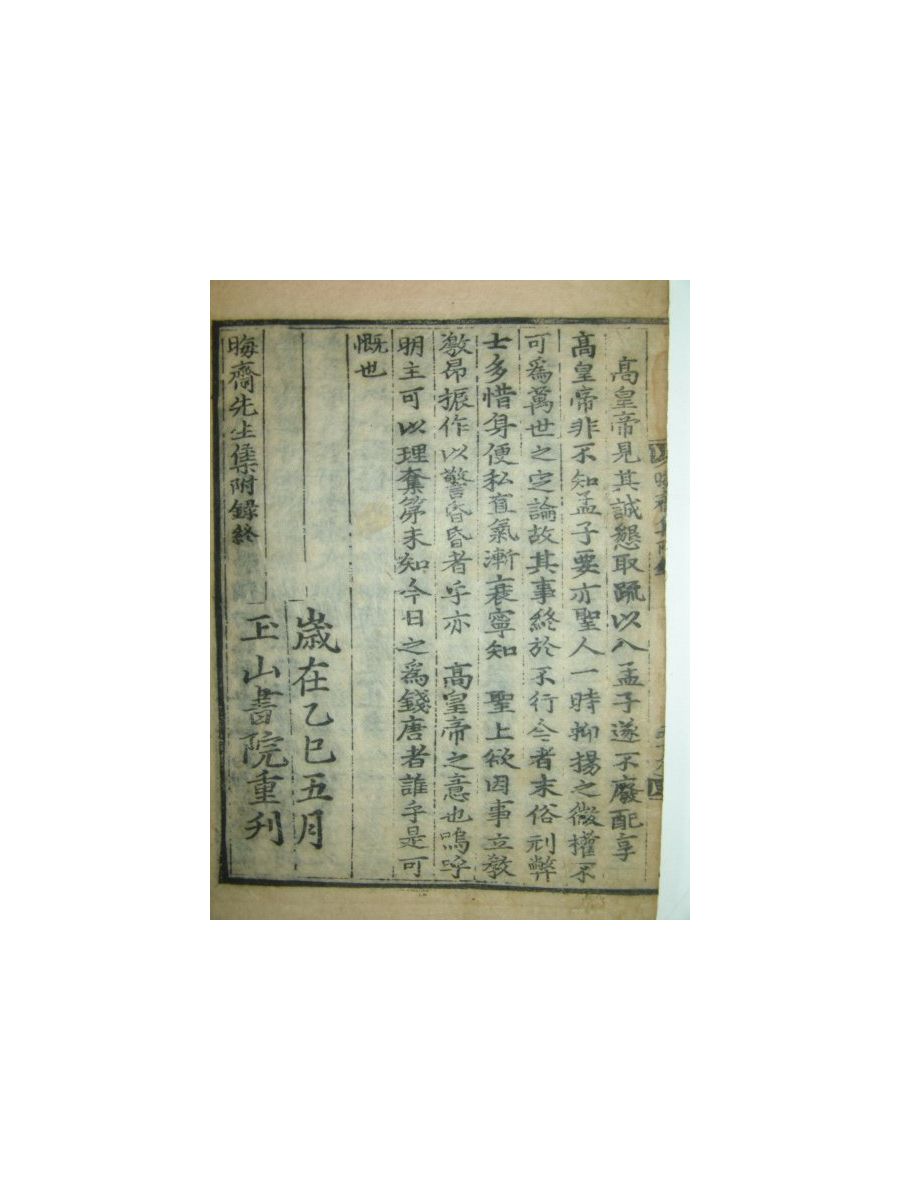 高皇帝見其誠懇取䟽以入孟子遂不廢配享
高皇帝非不知孟子要亦聖人一時抑揚之微權不
可爲萬世之定論故其事終於不行今者末俗刓弊
士多惜身便私直氣漸衰寧知 聖上欲因事立敎
激昂振作以警昏昏者乎亦 高皇帝之意也嗚呼
明主可以理奪第未知今日之爲錢唐者誰乎是可
慨也
歲在乙巳五月
玉山書院重刋
晦齋先生集附錄終